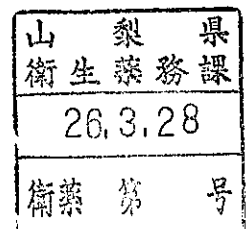 山梨県
衛生薬務課
26.3.28
衛薬 第 号